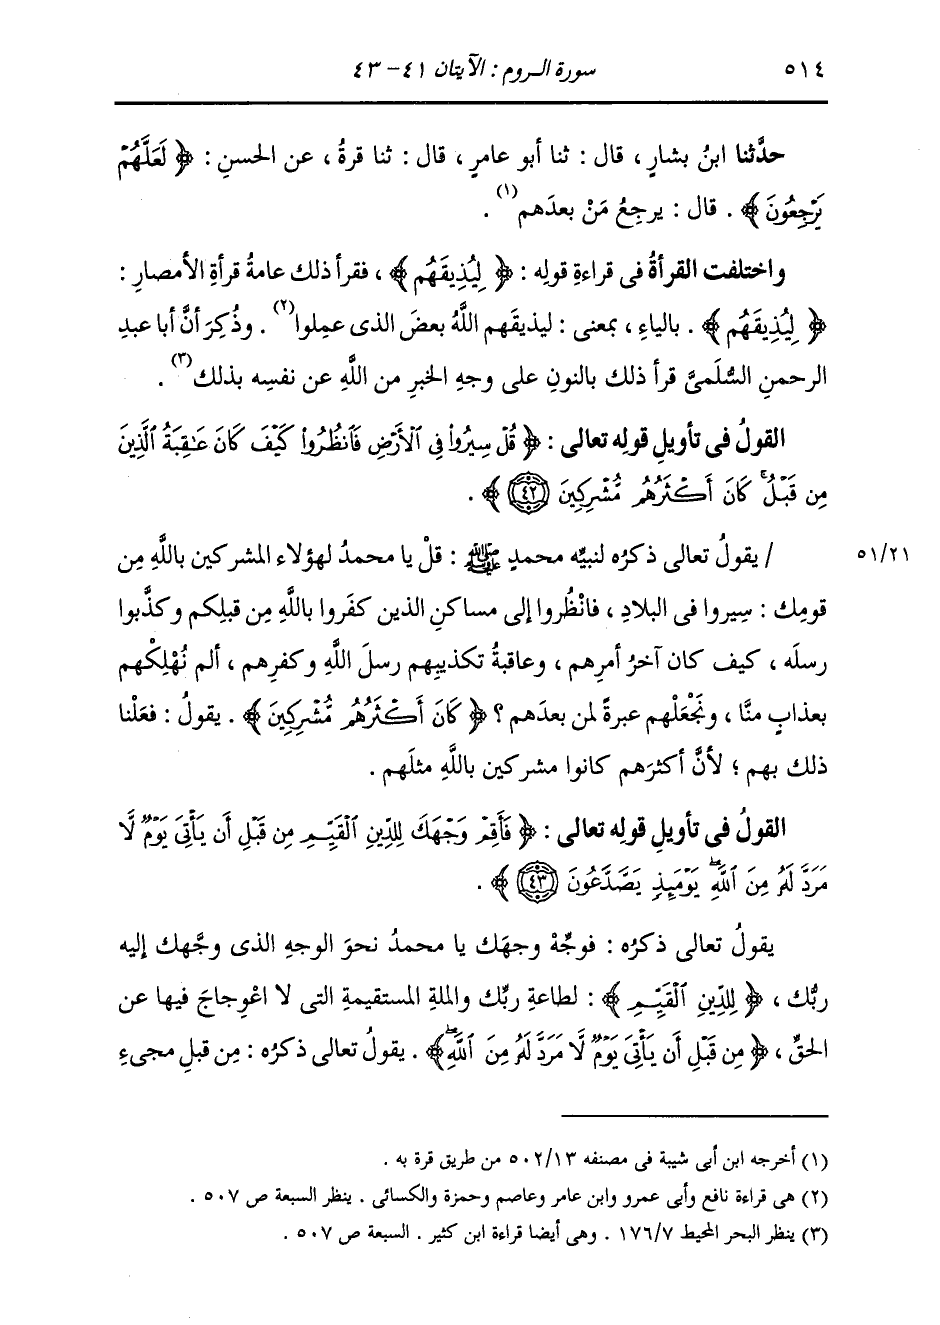 ٥١٤ سورة الروم : الآيتان ٤١- ٤٣
حدَّثنا ابنُ بشارٍ ، قال : ثنا أبو عامرٍ ، قال : ثنا قرةُ ، عن الحسنِ : ﴿ لَعَلَّهُمْ
يَرْجِعُونَ ﴾ . قال : يرجِعُ مَنْ بعدَهم(١) .
واختلفت القرأةُ فى قراءةِ قولِه : ﴿ لِيُذِيقَهُم ﴾ ، فقرأ ذلك عامةُ قرأةِ الأمصارِ :
﴿ لِيُذِيقَهُم ﴾ . بالياءِ ، بمعنى : ليذيقَهم اللَّهُ بعضَ الذى عملوا(٢) . وذُكِرَ أنَّ أبا عبدِ
الرحمنِ السُّلَمىَّ قرأ ذلك بالنونِ على وجهِ الخبرِ من اللَّهِ عن نفسِه بذلك(٣) .
القولُ فى تأويلِ قولِه تعالى : ﴿ قُلْ سِيرُواْ فِى ٱلْأَرْضِ فَٱنظُرُواْ كَيْفَ كَانَ عَـٰقِبَةُ ٱلَّذِينَ
مِن قَبْلُ ۚ كَانَ أَكْثَرُهُم مُّشْرِكِينَ ٤٢ ﴾ .
٥١/٢١ / يقولُ تعالى ذكرُه لنبيِّه محمدٍ ﷺ : قلْ يا محمدُ لهؤلاء المشركين باللَّهِ مِن
قومِك : سِيروا فى البلادِ ، فانْظُروا إلى مساكنِ الذين كفَروا باللَّهِ مِن قبلِكم وكذَّبوا
رسلَه ، كيف كان آخرُ أمرِهم ، وعاقبةُ تكذيبِهم رسلَ اللَّهِ وكفرِهم ، ألم نُهْلِكْهم
بعذابٍ منَّا ، ونَجْعَلْهم عبرةً لمن بعدَهم ؟ ﴿ كَانَ أَكْثَرُهُم مُّشْرِكِينَ ﴾ . يقولُ : فعَلْنا
ذلك بهم ؛ لأنَّ أكثرَهم كانوا مشركين باللَّهِ مثلَهم .
القولُ فى تأويلِ قولِه تعالى : ﴿ فَأَقِمْ وَجْهَكَ لِلدِّينِ ٱلْقَيِّمِ مِن قَبْلِ أَن يَأْتِىَ يَوْمٌ لَّا
مَرَدَّ لَهُۥ مِنَ ٱللَّهِ ۖ يَوْمَئِذٍ يَصَّدَّعُونَ ٤٣ ﴾ .
يقولُ تعالى ذكرُه : فوجِّهْ وجهَك يا محمدُ نحوَ الوجهِ الذى وجَّهك إليه
ربُّك ، ﴿ لِلدِّينِ ٱلْقَيِّمِ ﴾ : لطاعةِ ربِّك والملةِ المستقيمةِ التى لا اعْوِجاجَ فيها عن
الحقِّ ، ﴿ مِن قَبْلِ أَن يَأْتِىَ يَوْمٌ لَّا مَرَدَّ لَهُۥ مِنَ ٱللَّهِ ۖ ﴾ . يقولُ تعالى ذكرُه : مِن قبلِ مجىءِ
(١) أخرجه ابن أبى شيبة فى مصنفه ٥٠٢/١٣ من طريق قرة به .
(٢) هى قراءة نافع وأبى عمرو وابن عامر وعاصم وحمزة والكسائى . ينظر السبعة ص ٥٠٧ .
(٣) ينظر البحر المحيط ١٧٦/٧ . وهى أيضا قراءة ابن كثير . السبعة ص ٥٠٧ .